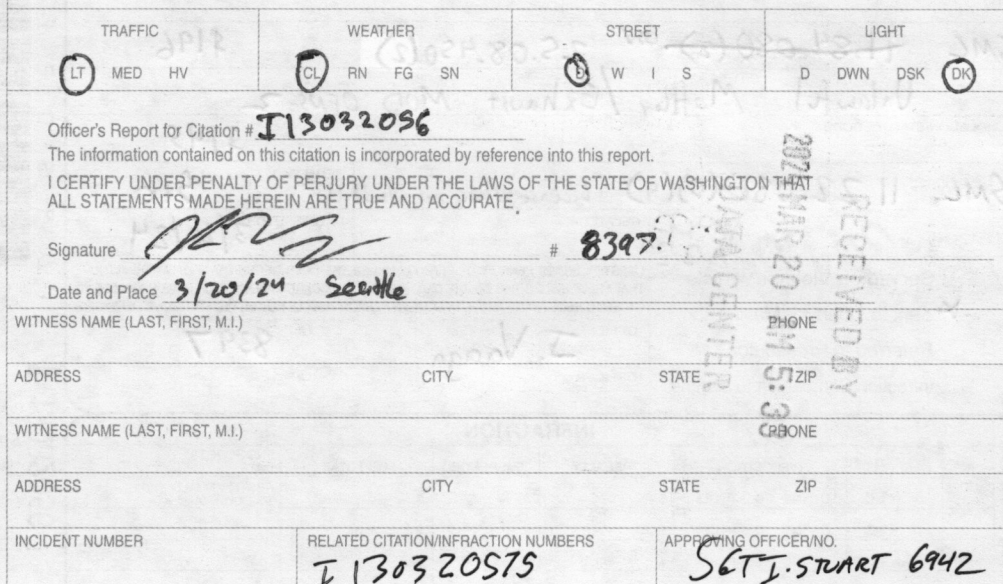 TRAFFIC WEATHER STREET LIGHT
LT MED HV CL RN FG SN D W I S D DWN DSK DK
Officer's Report for Citation # I13032056
The information contained on this citation is incorporated by reference into this report.
I CERTIFY UNDER PENALTY OF PERJURY UNDER THE LAWS OF THE STATE OF WASHINGTON THAT
ALL STATEMENTS MADE HEREIN ARE TRUE AND ACCURATE
Signature # 8397
Date and Place 3/20/24 Seattle
RECEIVED BY
DATA CENTER
2024 MAR 20 AM 5:
WITNESS NAME (LAST, FIRST, M.I.) PHONE
ADDRESS CITY STATE ZIP
WITNESS NAME (LAST, FIRST, M.I.) PHONE
ADDRESS CITY STATE ZIP
INCIDENT NUMBER RELATED CITATION/INFRACTION NUMBERS APPROVING OFFICER/NO.
I130320575 SGT I. STUART 6942